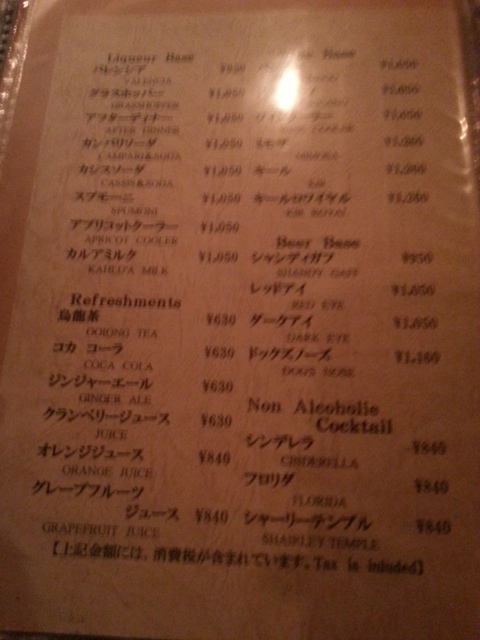 Liqueur Base
バレンシア
VALENCIA
グラスホッパー ¥1,050
GRASSHOPPER
アフターディナー ¥1,050
AFTER DINNER
カンパリソーダ ¥1,050
CAMPARI&SODA
カシスソーダ ¥1,050
CASSIS&SODA
スプモーニ ¥1,050
SPUMONI
アプリコットクーラー ¥1,050
APRICOT COOLER
カルアミルク ¥1,050
KAHLUA MILK
Refreshments
烏龍茶 ¥630
OOLONG TEA
コカ コーラ ¥630
COCA COLA
ジンジャーエール ¥630
GINGER ALE
クランベリージュース ¥630
JUICE
オレンジジュース ¥840
ORANGE JUICE
グレープフルーツ
ジュース ¥840
GRAPEFRUIT JUICE
Base
ミモザ
キール
KIR
キールロワイヤル
KIR ROYAL
Beer Base
シャンディガフ ¥950
SHANDY GAFF
レッドアイ ¥1,050
RED EYE
ダークアイ ¥1,050
DARK EYE
ドッグズノーズ ¥1,160
DOG'S NOSE
Non Alcoholic
Cocktail
シンデレラ ¥840
CINDERELLA
フロリダ ¥840
FLORIDA
シャーリーテンプル ¥840
SHAIRLEY TEMPLE
【上記金額には、消費税が含まれています。Tax is inluded】